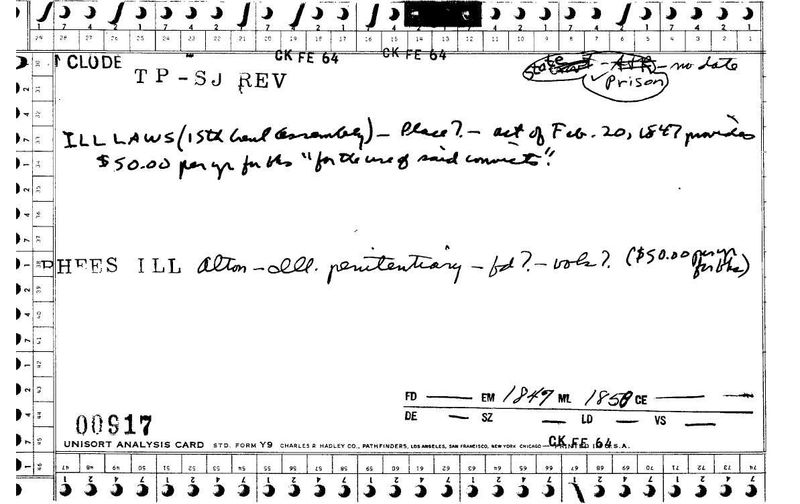 CLUDE CK FE 64 CK FE 64
TP-SJ REV
State - no date
Prison
ILL LAWS (15th Genl Assembly) - Place? - act of Feb. 20, 1847 provides
$50.00 per yr for bks "for the use of said convicts".
HEES ILL Alton - Ill. penitentiary - fd? - vols? ($50.00 per yr
for bks)
FD — EM 1847 ML 1858 CE —
DE — SZ — LD — VS —
00917
UNISORT ANALYSIS CARD STD. FORM Y9 CHARLES R HADLEY CO., PATHFINDERS, LOS ANGELES, SAN FRANCISCO, NEW YORK CHICAGO CK FE 64 PRINTED IN U.S.A.